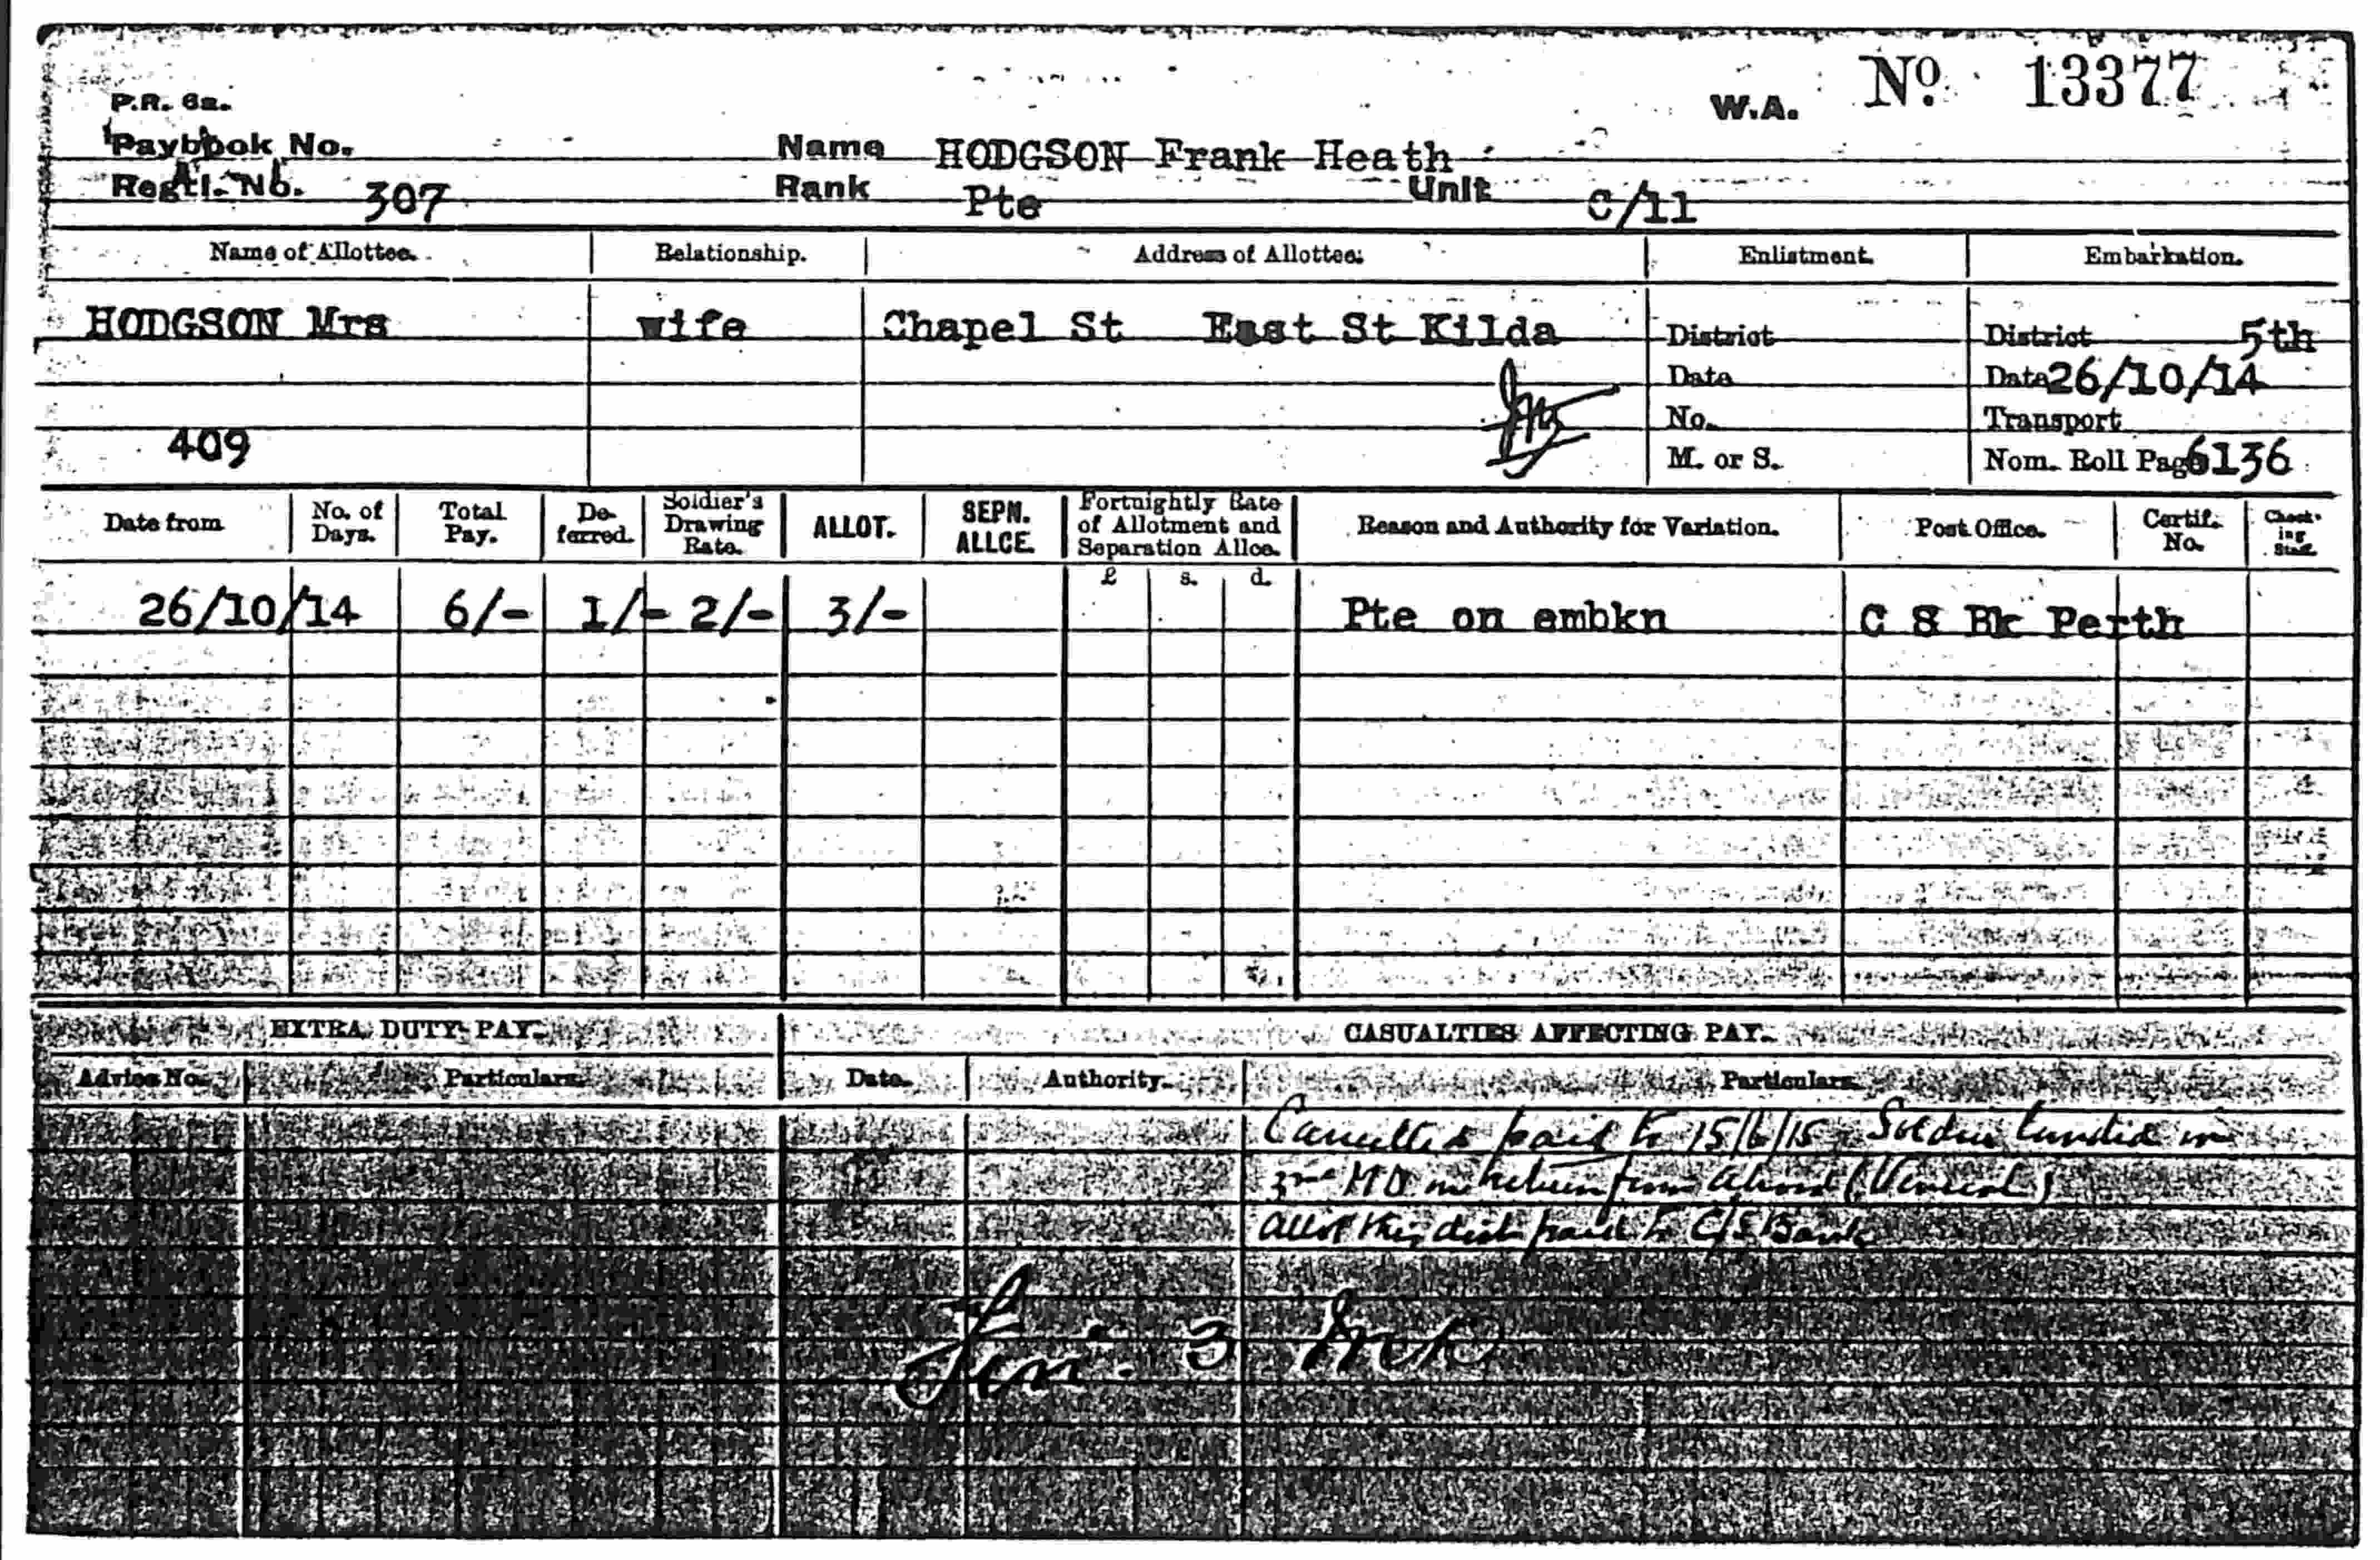 W.A. No. 13377
P.R. 6a.
Paybook No. Name HODGSON Frank Heath
Regtl. No. 307 Rank Pte Unit C/11
Name of Allottee. Relationship. Address of Allottee. Enlistment. Embarkation.
HODGSON Mrs wife Chapel St East St Kilda District District 5th
Date Date 26/10/14
No. Transport
409 M. or S. Nom. Roll Page 6136
Date from No. of Days. Total Pay. De-ferred. Soldier's Drawing Rate. ALLOT. SEPN. ALLCE. Fortnightly Rate of Allotment and Separation Allce. Reason and Authority for Variation. Post Office. Certif. No. Check-ing Staff.
£ s. d.
26/10/14 6/- 1/- 2/- 3/- Pte on embkn C S Bk Perth
EXTRA DUTY PAY. CASUALTIES AFFECTING PAY.
Advice No. Particulars. Date. Authority. Particulars.
Cancelled paid to 15/6/15 Soldier landed in
3rd MD on return from abroad (Venereal)
allot this dist paid to C/S Bank
Fin. 3